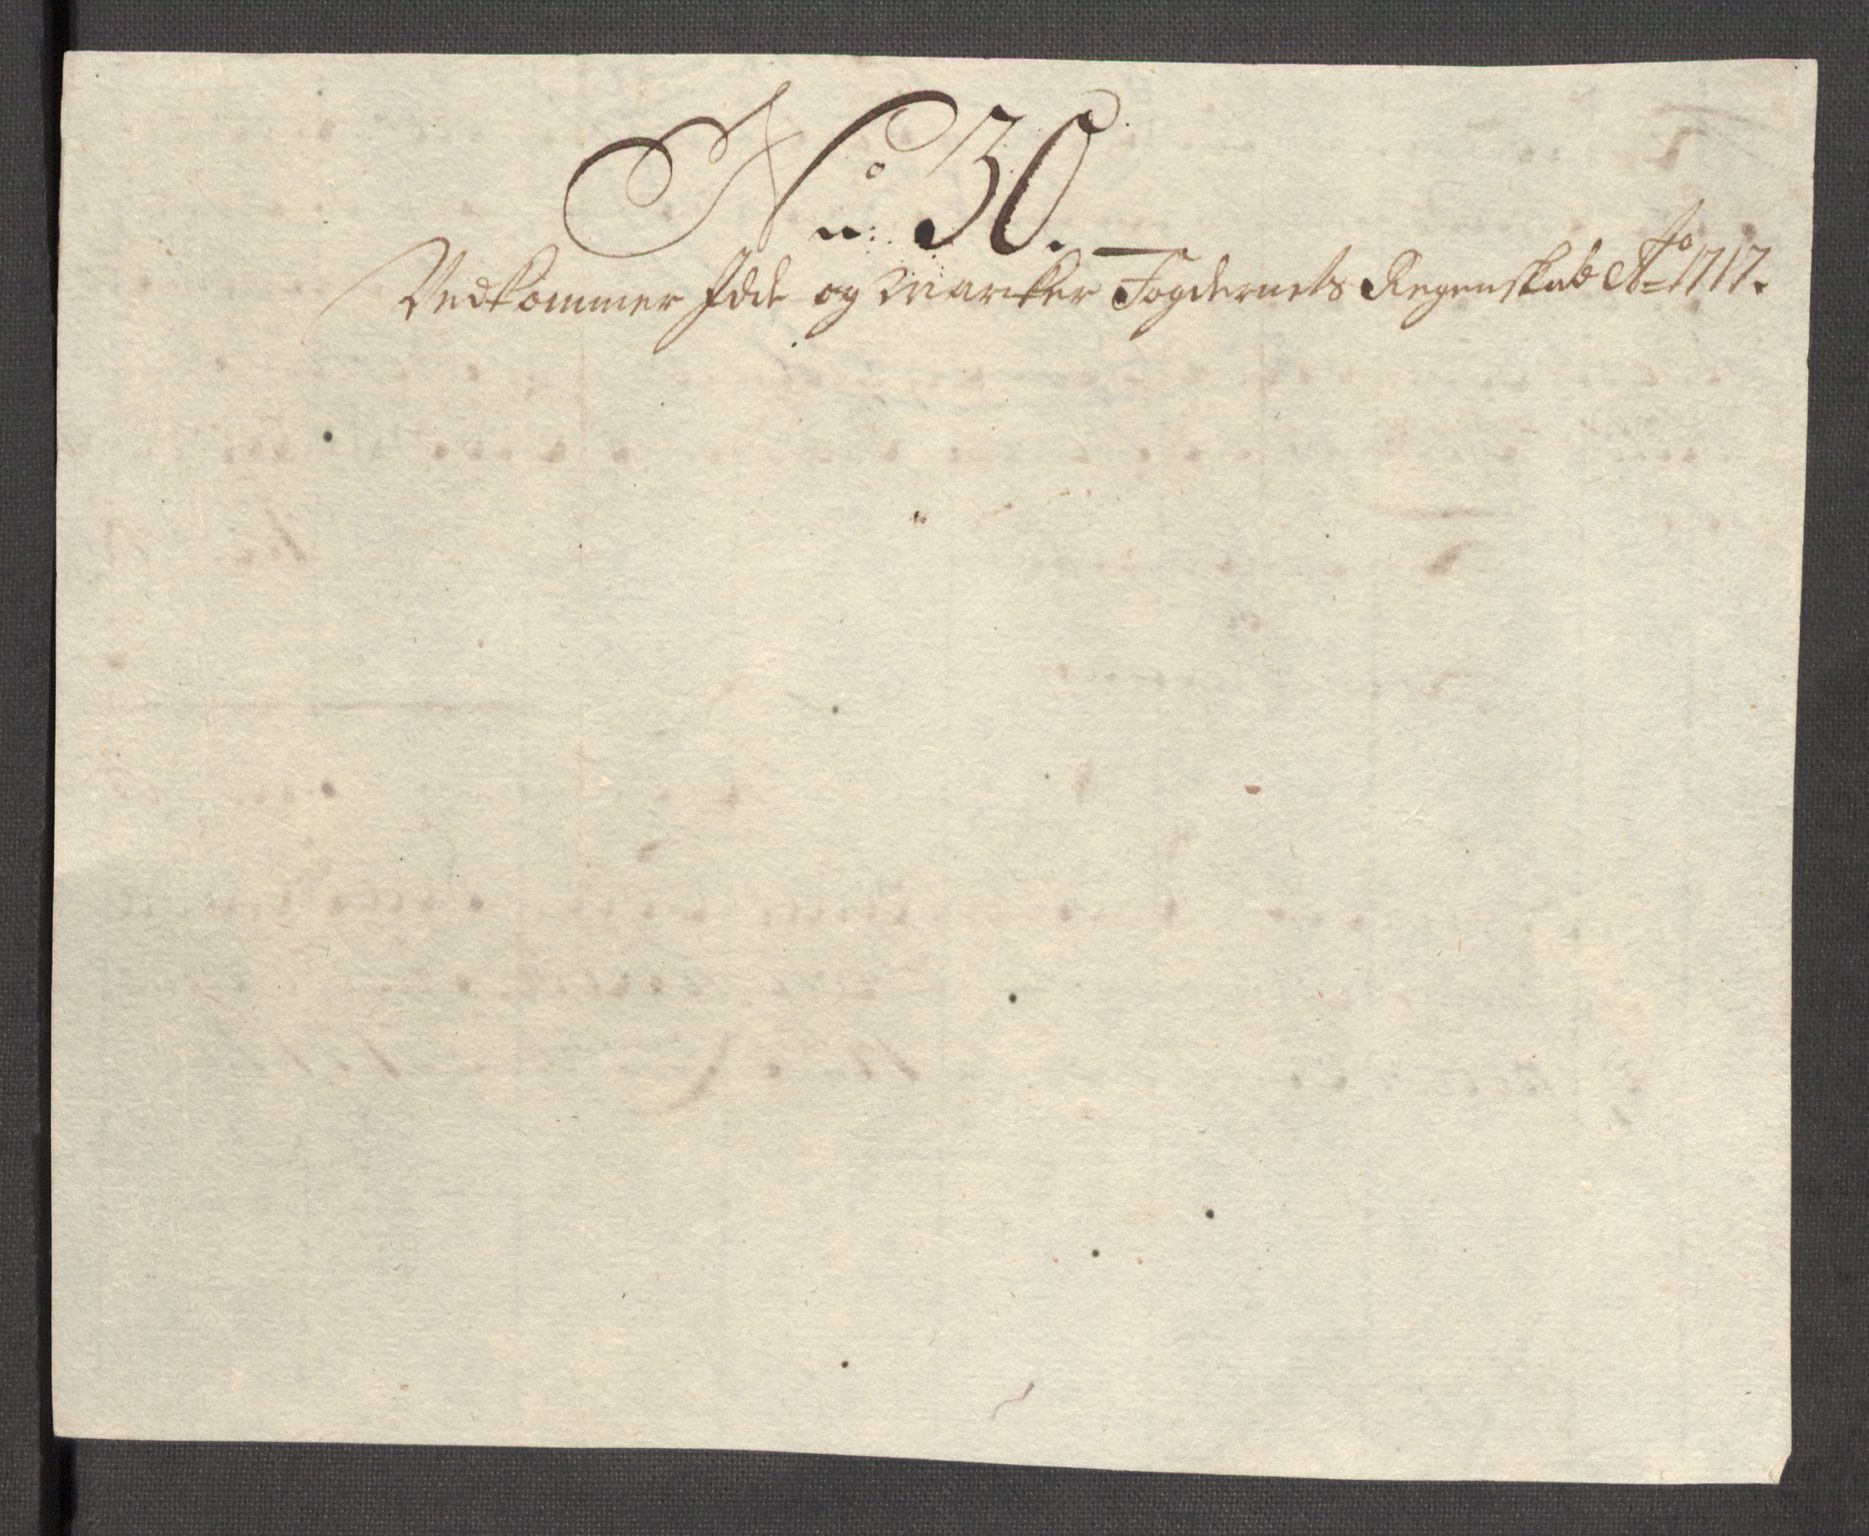 No: 30.
Vedkommer Idde og Marker Fogderiets Regenskab Ao 1717.